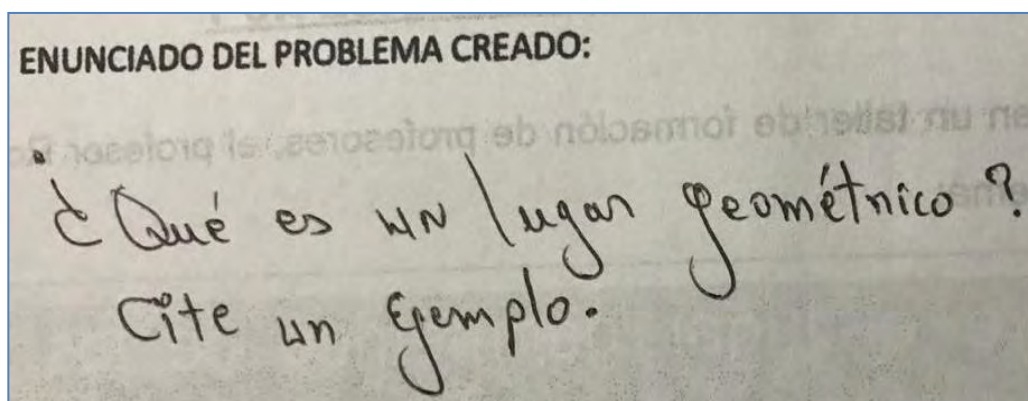 ENUNCIADO DEL PROBLEMA CREADO:
¿Qué es un lugar geométrico?
Cite un ejemplo.